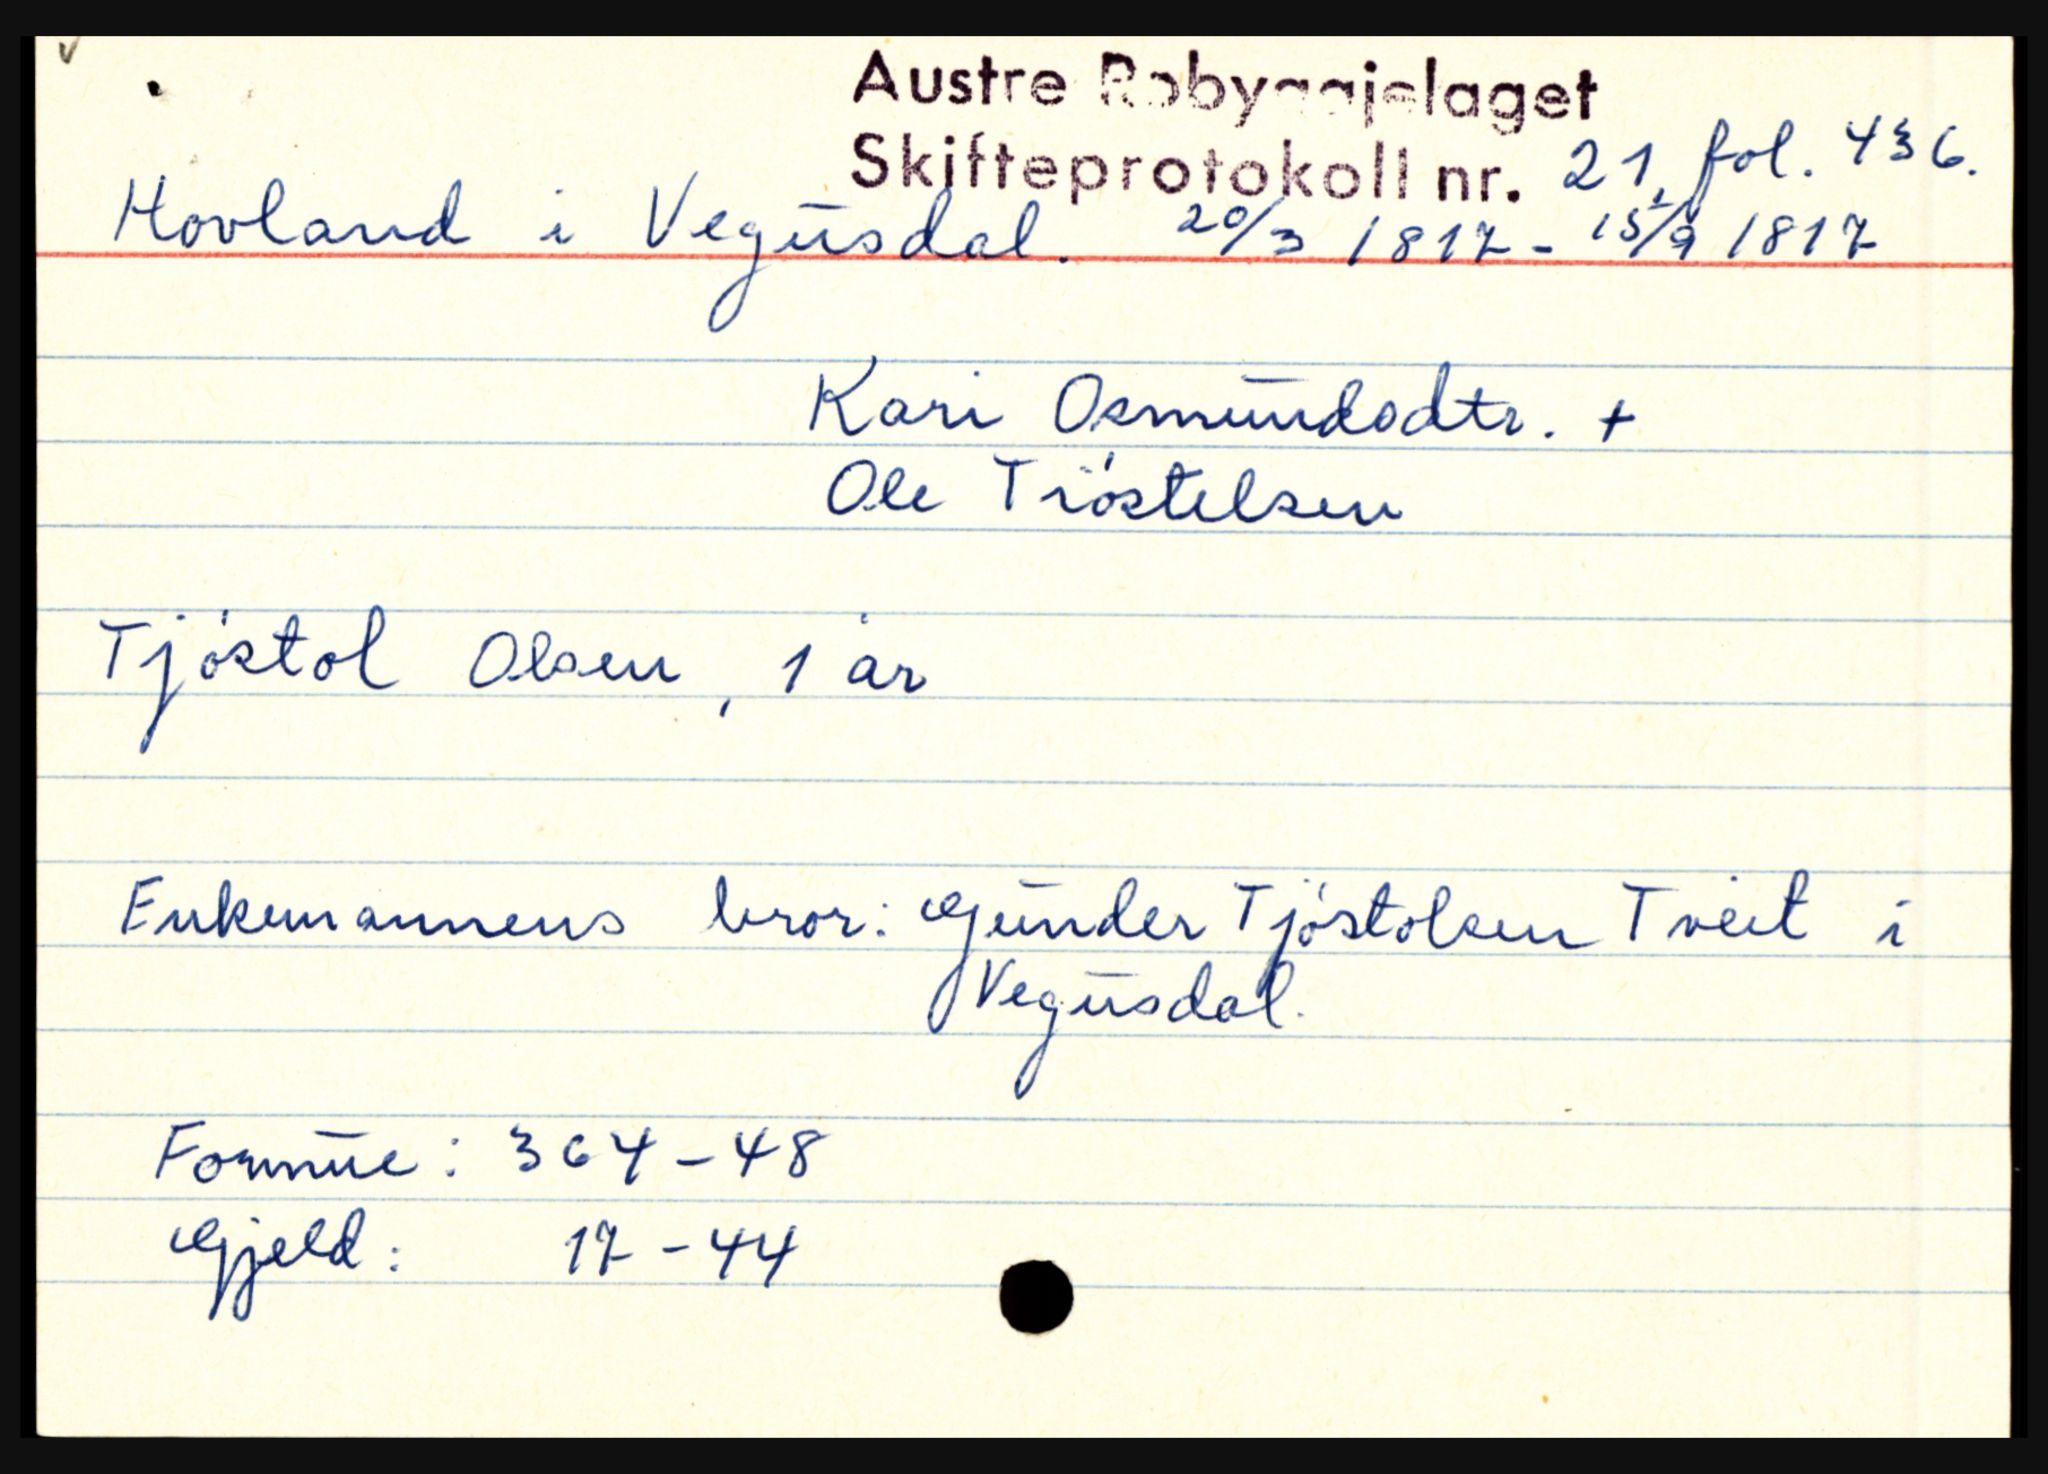 Austre Robyggjelaget
Skifteprotokoll nr. 21, fol. 436.
Hovland i Vegusdal. 20/3 1817 - 15/9 1817
Kari Osmundsdtr. +
Ole Tiøstelsen
Tjøstol Olsen, 1 år
Enkemannens bror: Gunder Tjøstolsen Tveit i
Vegusdal.
Formue: 364-48
Gjeld: 17-44